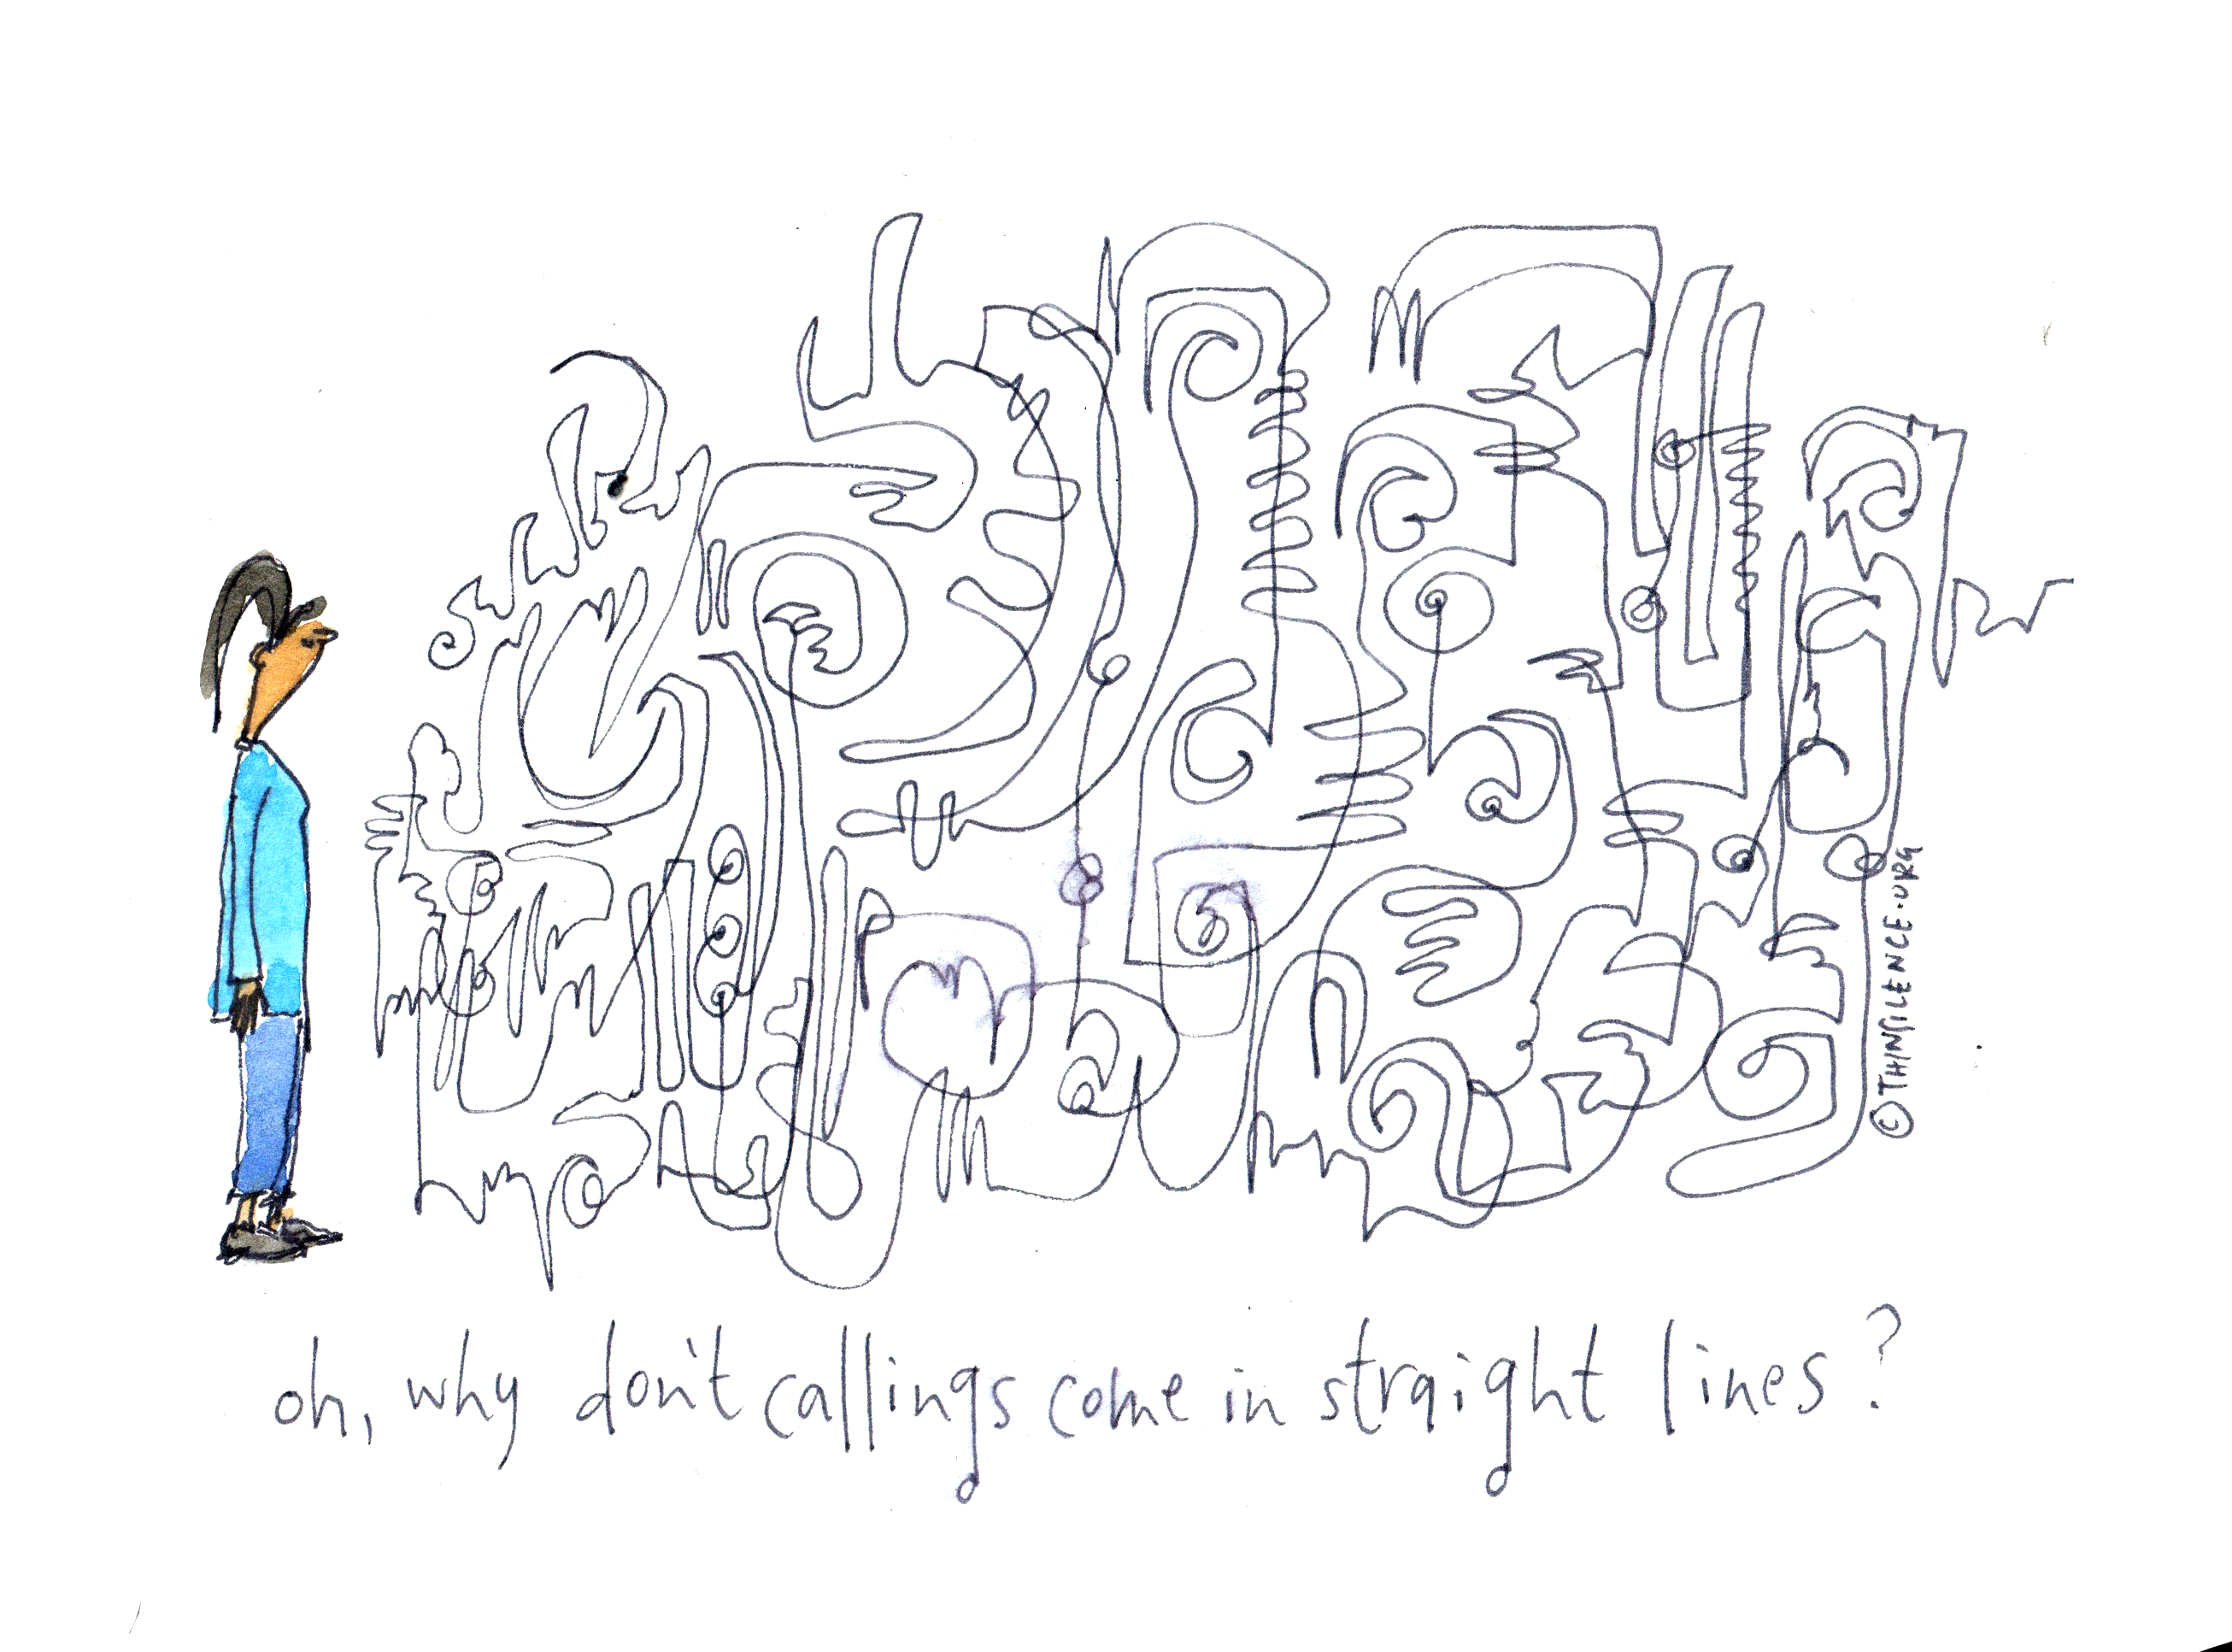 © THINSILENCE.ORG
oh, why don't callings come in straight lines?